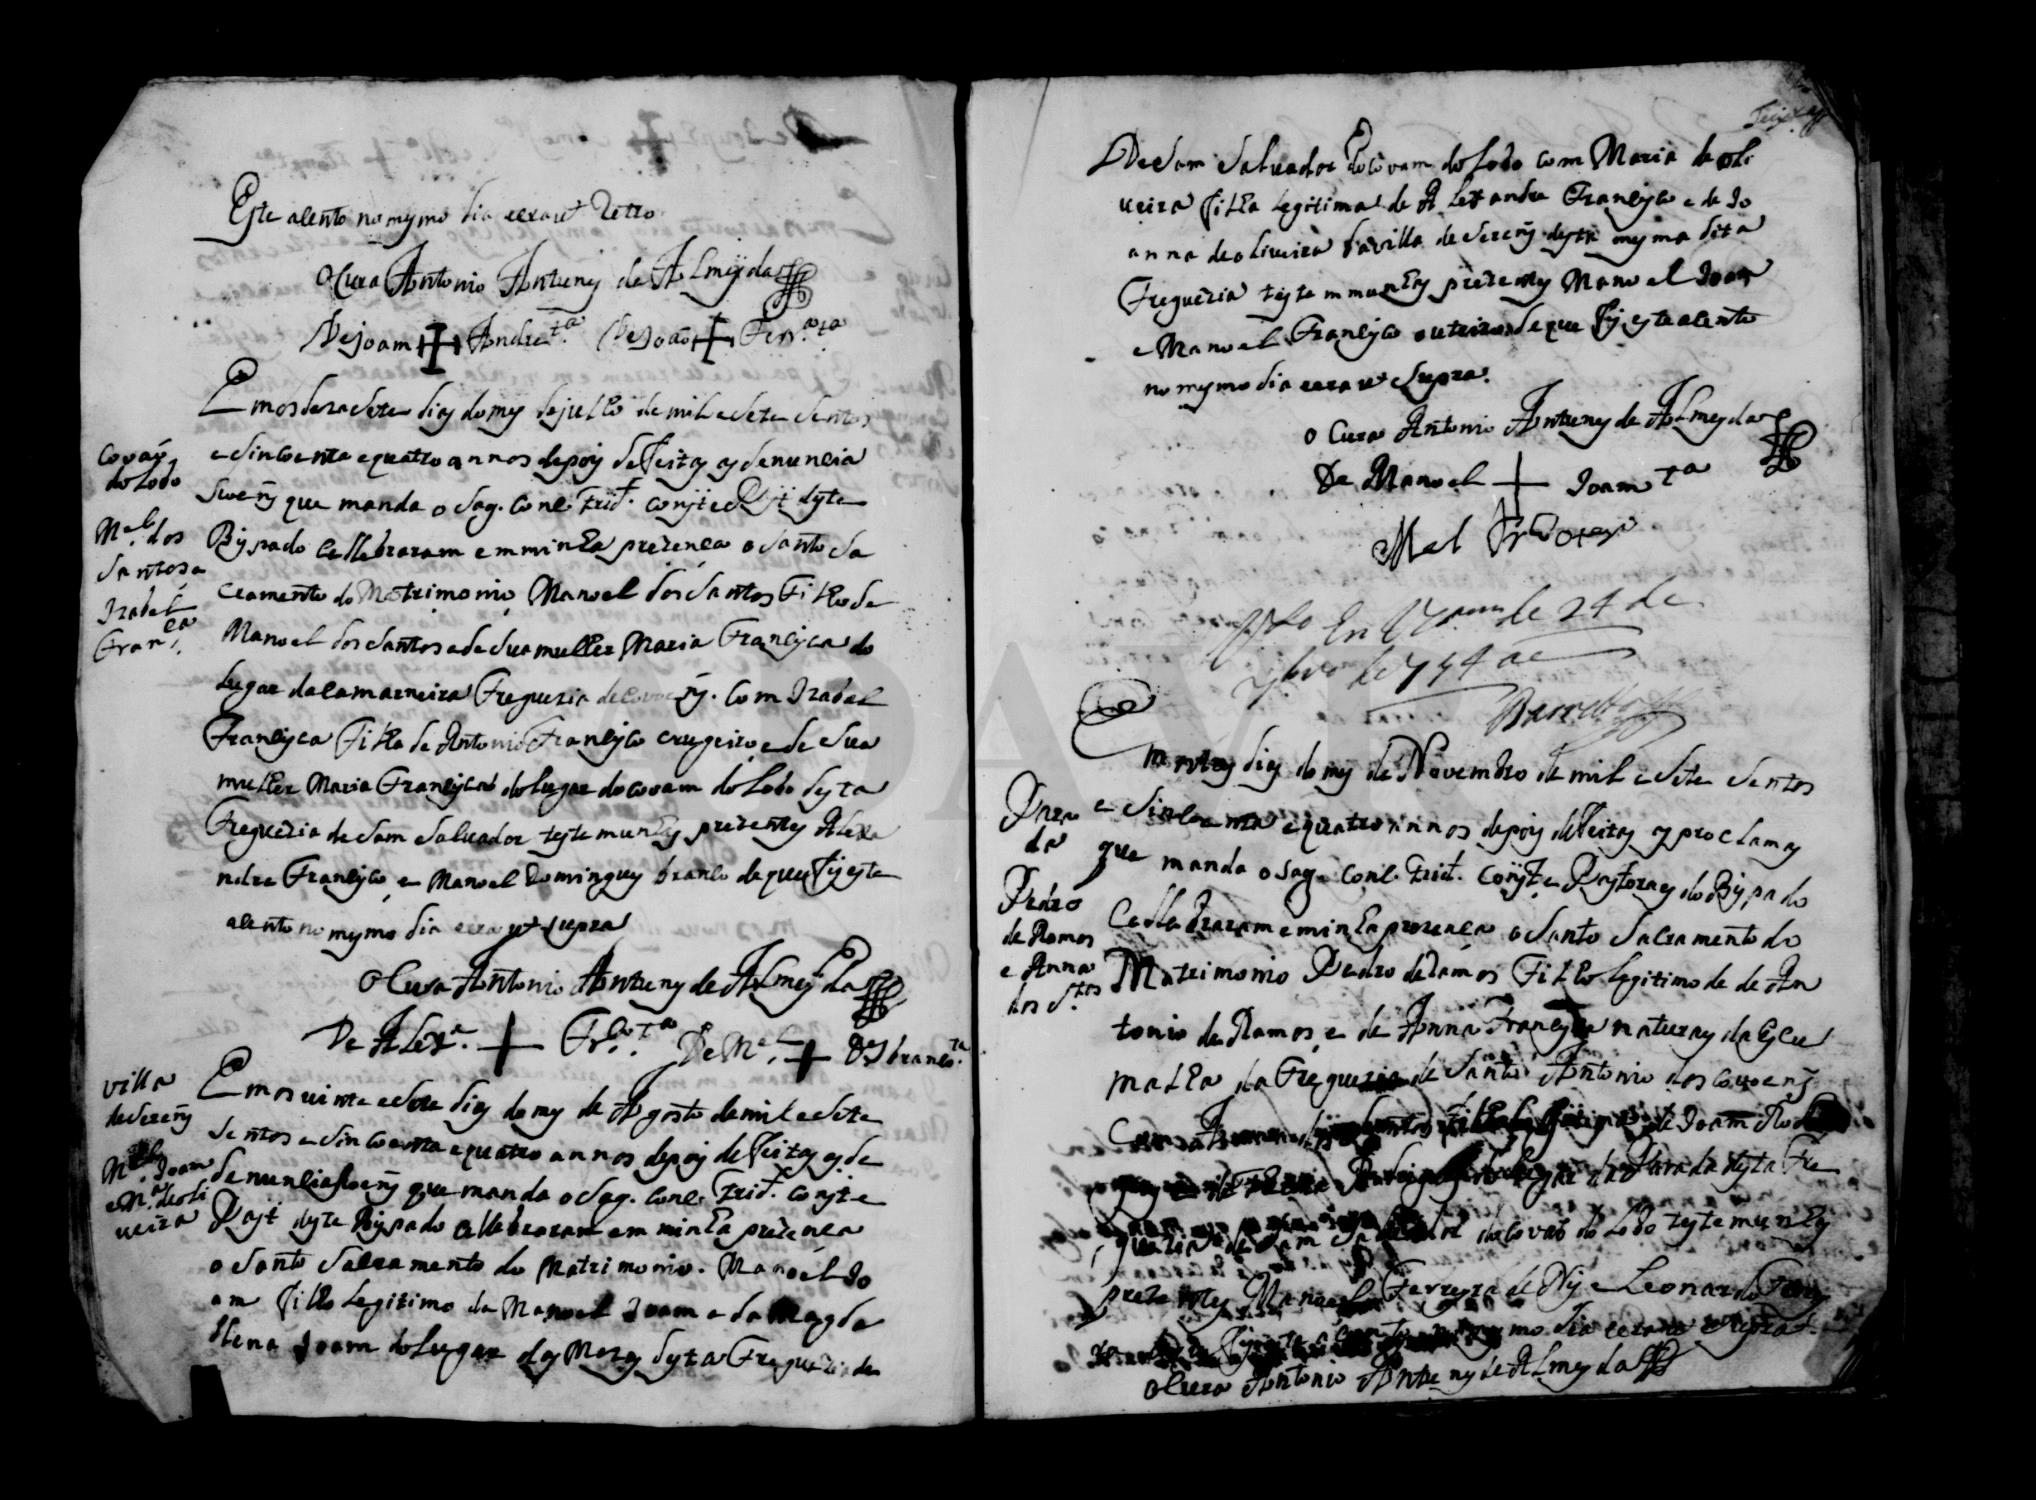 Este asento no mymo dia eera ut retro
O Cura Antonio Antunes de Almeyda
De Joam + Andre t.ª De João + Fern.ᵃ tª
Em os deza sete dias do mes de julho de mil e sete sentos
e sincoenta e quatro annos depois de feitas as denuncia
sois que manda o Sag. Conc. Trid. Const. e Const. deste
Bispado Cellebraram em minha prezenca o Santo Sa
cramento do Matrimonio Manoel dos Santos Filho de
Manoel dos Santos e de sua mulher Maria Francisca do
lugar da Camarneira Freguezia de Covões. Com Izabel
Francisca Filha de Antonio Francisco cruzeiro e de Sua
mulher Maria Francisca do lugar do covam do lobo desta
Freguezia de Sam Salvador testemunhas prezentes Alexa
ndre Francisco, e Manoel Domingues branco de que fis este
asento no mymo dia eera ut supra
O Cura Antonio Antunes de Almeyda
De Alex.ᵉ + Fr.ᶜᵒ tª De M.ᵉˡ + D.ᵉˢ branco tª
covão
do lobo
M.ᵉˡ dos
Santos e
Izabel
Fran.ᶜᵃ
Em os vinte e sete dias do mes de Agosto de mil e sete
sentos e sincoenta e quatro annos depois de feitas as de
nunciasoens que manda o Sag. Conc. Trid. Const. e
Const. deste Bispado cellebraram em minha prezenca
o Santo Sacramento do Matrimonio. Manoel Jo
am filho legitimo de Manoel Joam e da Magda
llena Joam do lugar das Mezas desta Freguezia de
villa
de sereis
M.ᵉˡ Joam
e M.ᵃ de oli
veira
De Sam Salvador do Covam do Lobo com Maria de oli
veira filha legitima de Alexandre Francisco e de Jo
anna de oliveira da villa de sereis desta mesma dita
Freguezia testemunhas prezentes Manoel Joam
e Manoel Francisco outeiro de que fis este asento
no mymo dia eera ut Supra.
O Cura Antonio Antunes de Almeyda
De Manoel + Joam tª
Mel Fr.ᶜᵒ
V.to Em de 24 de
de 754
Barreto
Em os tres dias do mes de Novembro de mil e sete sentos
e sincoenta e quatro annos depois de feitas os proclamas
que manda o Sag. Conc. Trid. Const. e Pastoraes do Bispado
Cellebraram em minha prezenca o Santo Sacramento do
Matrimonio Pedro de Ramos Filho legitimo de de An
tonio de Ramos, e de Anna Francisca naturaes da Escu
malha da Freguezia de Santo Antonio dos covoens
Com Anna dos Santos Filha legitima de Joam
lugar da Parada desta Fre
guezia de Sam Salvador do covão do Lobo testemunhas
prezentes Manoel Ferreyra de e Leonardo
mo dia eera ut Supra
O Cura Antonio Antunes de Almeyda
Para
da
Pedro
de Ramos
e Anna
dos S.ᵗᵒˢ